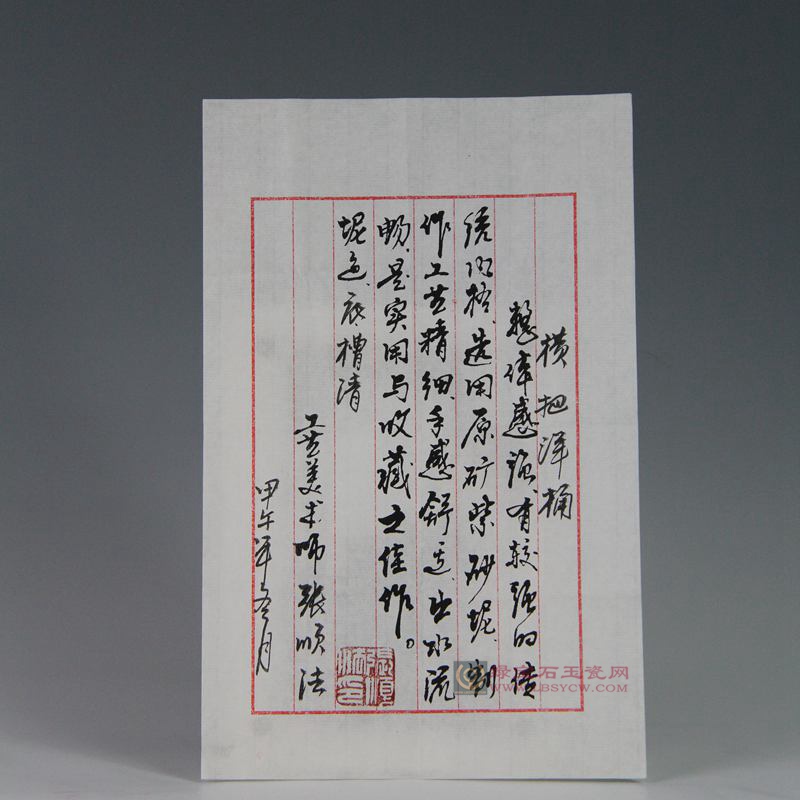 横把洋桶
整体感强,有较强的传
统风格,选用原矿紫砂坭,制
作工艺精细,手感舒适,出水流
畅,是实用与收藏之佳作。
坭色:底槽清
工艺美术师 张顺法
甲午年冬月
绿宝石玉瓷网
WWW.LBSYCW.COM